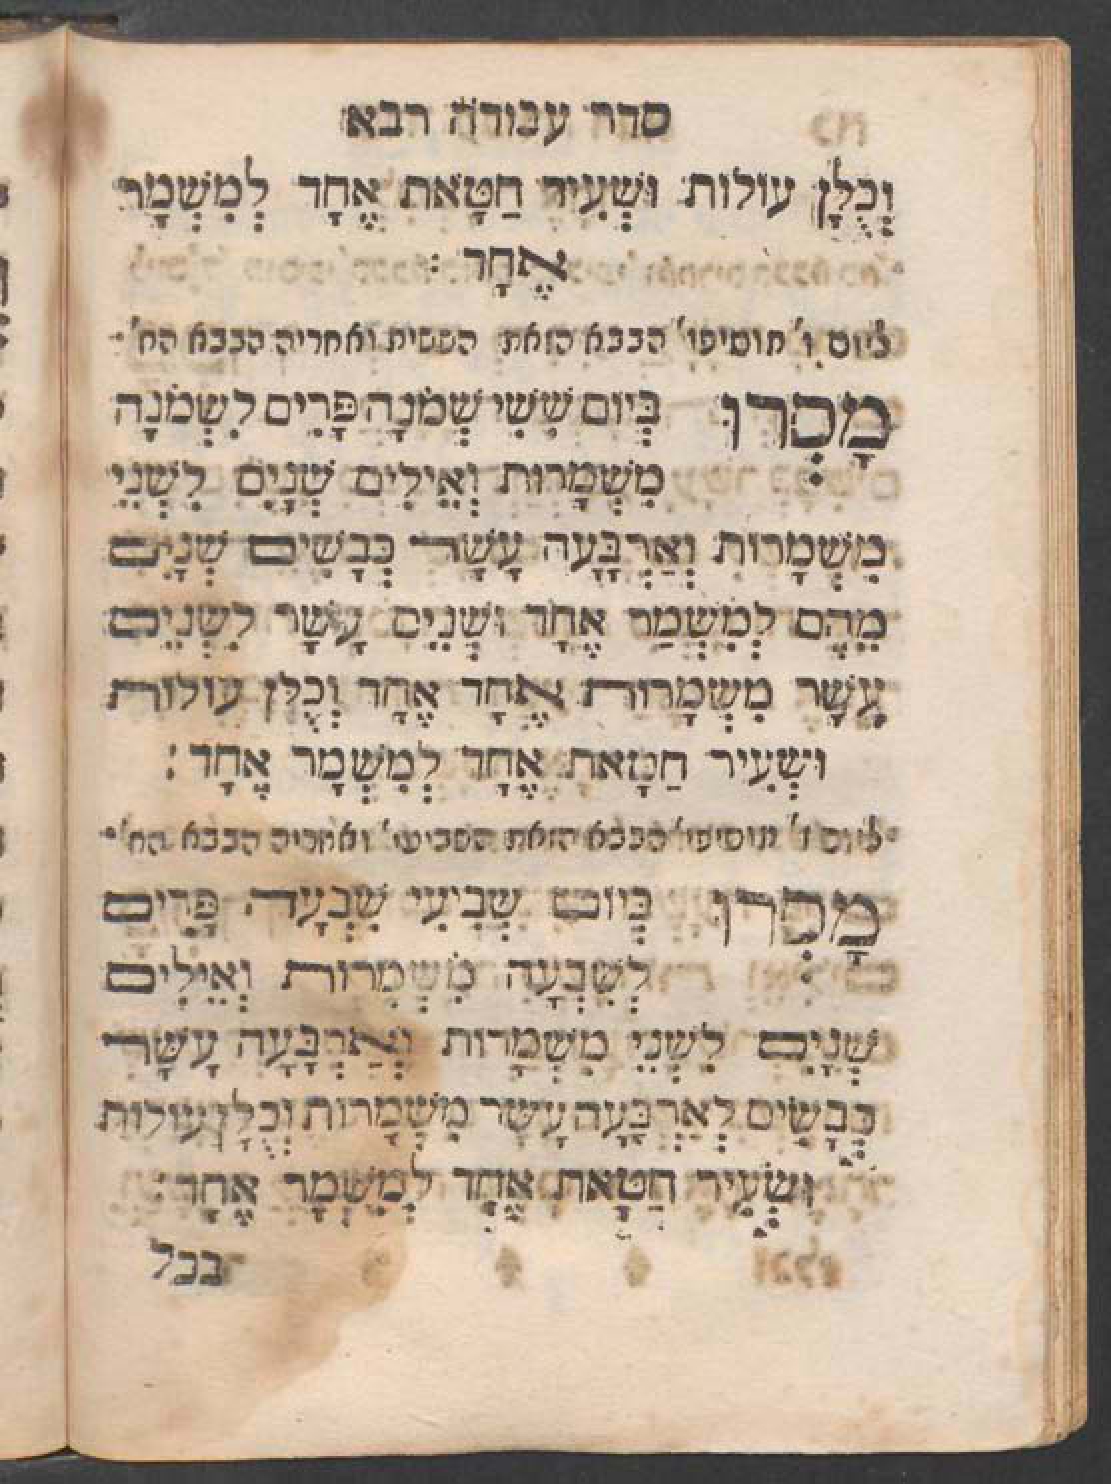 סדר עבודה רבא
וְכֻלָּן עולות וּשְׂעִיר חַטָּאת אֶחָד לְמִשְׁמָר
אֶחָד :
ליום ו' תוסיפו' הבבא הזאת הששית ואחריה הבבא הח'
מָסְרוּ בְּיום שִׁשִּׁי שְׁמֹנָה פָּרִים לִשְׁמֹנָה
מִשְׁמָרות וְאֵילִים שְׁנָיִם לִשְׁנֵי
מִשְׁמָרות וְאַרְבָּעָה עָשָׂר כְּבָשִׂים שְׁנָיִם
מֵהֶם לְמִשְׁמַר אֶחָד וּשְׁנֵים עָשָׂר לִשְׁנֵים
עָשָׂר מִשְׁמָרות אֶחָד אֶחָד וְכֻלָּן עולות
וּשְׂעִיר חַטָּאת אֶחָד לְמִשְׁמָר אֶחָד :
ליום ז' תוסיפו' הבבא הזאת השביעי' ואחריה הבבא הח'
מָסְרוּ בְּיום שְׁבִיעִי שִׁבְעָה פָּרִים
לְשִׁבְעָה מִשְׁמָרות וְאֵילִים
שְׁנָיִם לִשְׁנֵי מִשְׁמָרות וְאַרְבָּעָה עָשָׂר
כְּבָשִׂים לְאַרְבָּעָה עָשָׂר מִשְׁמָרות וְכֻלָּן עולות
וּשְׂעִיר חַטָּאת אֶחָד לְמִשְׁמָר אֶחָד :
בכל